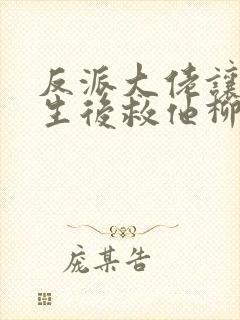 反派大佬讓
生後救他柳
庞某告